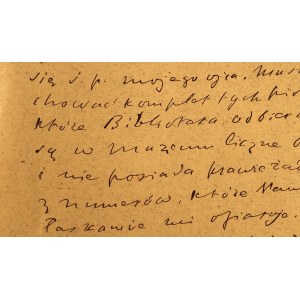 się ś.p. mojego ojca. Musz
chować komplet tych pis
które Biblioteka odbiera
są w muzeum liczne
i nie posiada prawie żad
z numerów, które Pan
łaskawie mi ofiaruje.